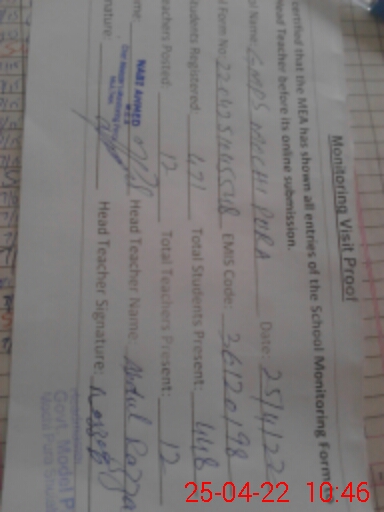 Monitoring Visit Proof
certified that the MEA has shown all entries of the School Monitoring Form
Head Teacher before its online submission.
Name: GMPS MOCHI PURA Date: 25/4/22
Form No: EMIS Code: 36120198
Students Registered: 471 Total Students Present: 448
Teachers Posted: 12 Total Teachers Present: 12
NABT AHMED Head Teacher Name: Abdul Razza
Head Teacher Signature:
Govt. Model P
25-04-22 10:46